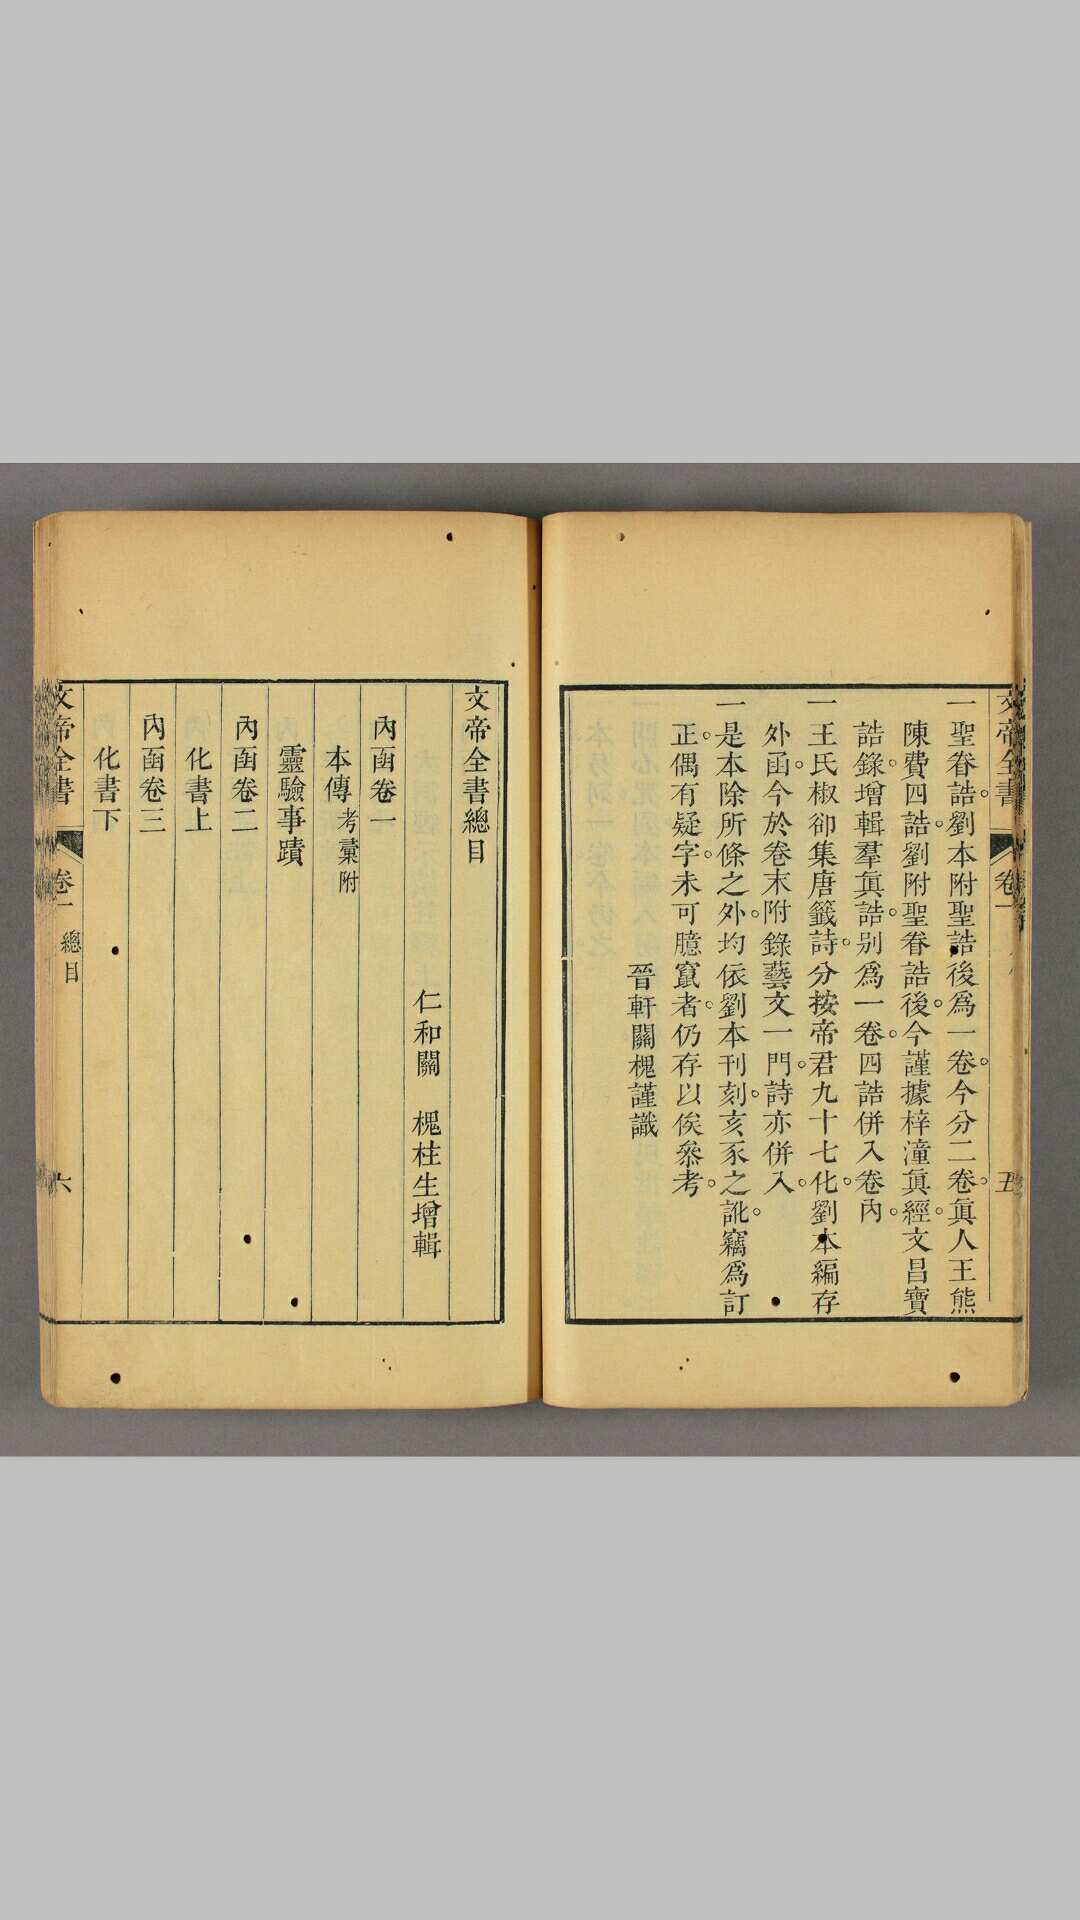 一聖眷誥。劉本附聖誥後爲一卷。今分二卷。眞人王熊
陳費四誥。劉附聖眷誥後。今謹據梓潼眞經。文昌寶
誥錄。增輯羣眞誥。別爲一卷。四誥併入卷內。
一王氏椒卻集唐籤詩。分按帝君九十七化。劉本編存
外函。今於卷末附錄藝文一門。詩亦併入。
一是本除所條之外。均依劉本刊刻。亥豕之訛。竊爲訂
正。偶有疑字。未可臆竄者。仍存以俟叅考。
晉軒關槐謹識
文帝全書
卷一
五
文帝全書總目
仁和關　槐柱生增輯
內函卷一
本傳考彙附
靈驗事蹟
內函卷二
化書上
內函卷三
化書下
文帝全書
卷一
總目
六